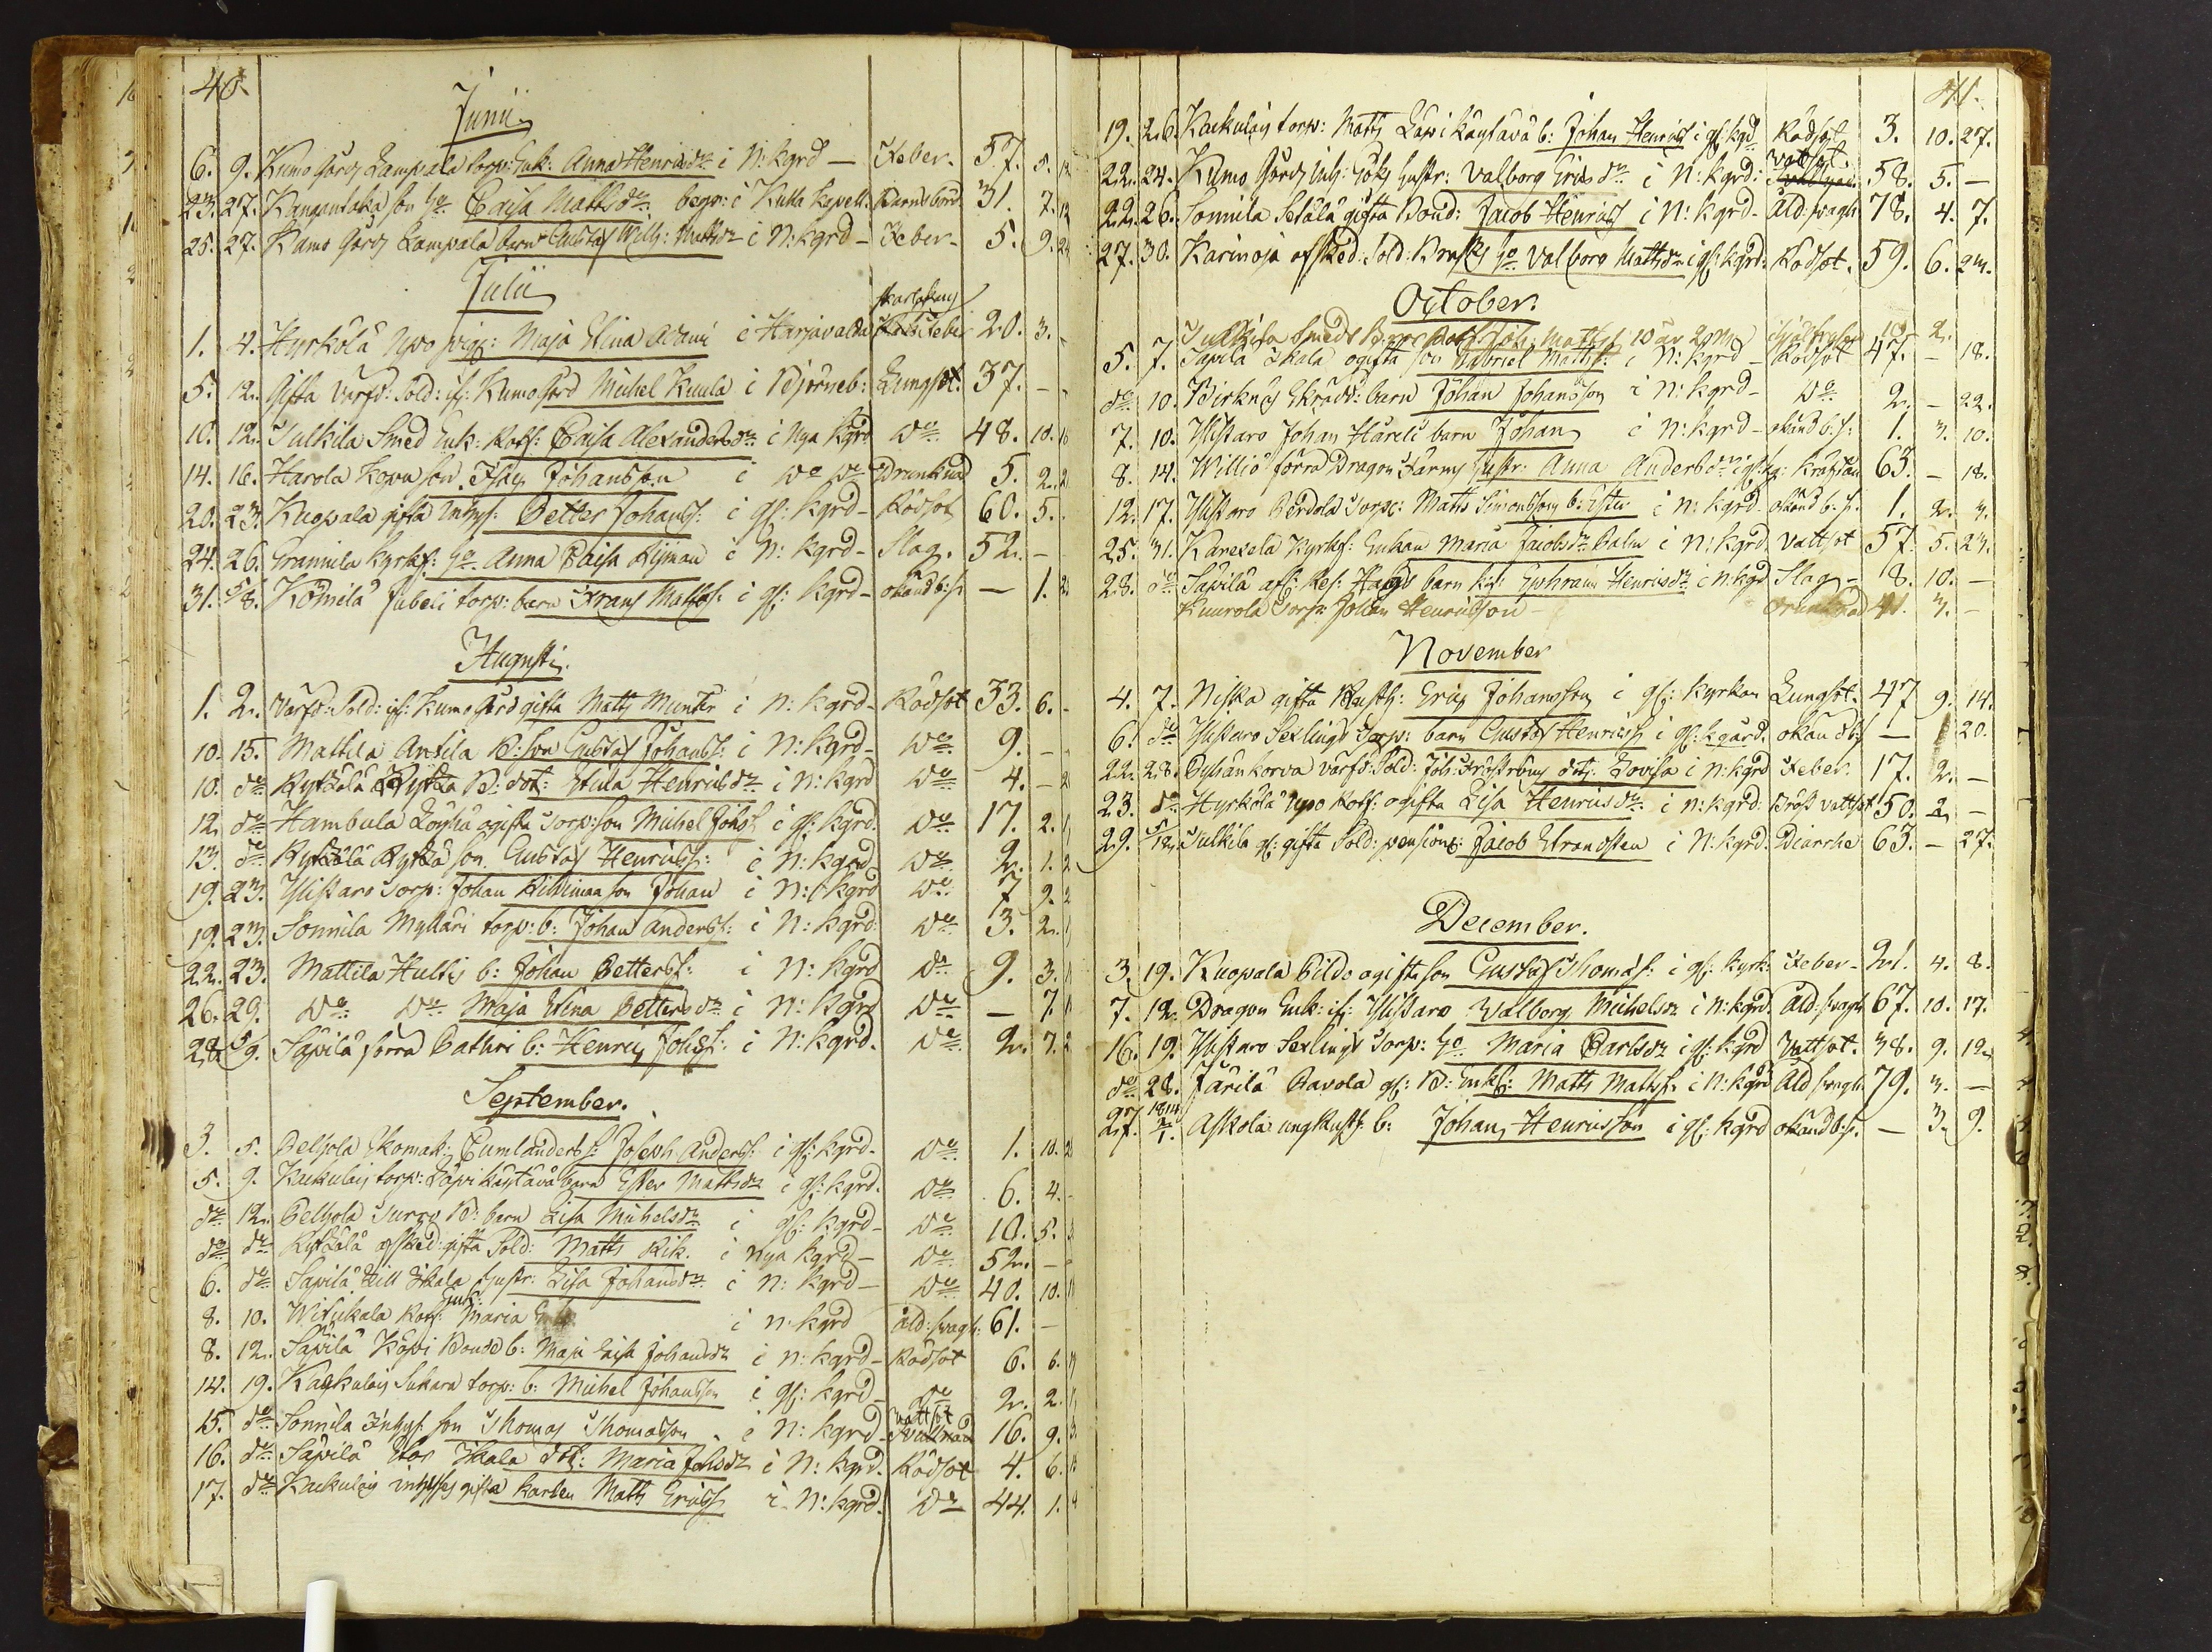 40.
Junii
6. 9. Kumo Gårds Lampala torp: Enk: Anna Henricsdr i N: kgrd — Feber. 57. 5.
23. 27. Kangantaka son Ho Caisa Mattsdr. begr: i Kapell. Barnsbörd 31. 7.
25. 27. Kumo Gårds Lampala barn Gustaf Wilh: Mattsdr i N: kgrd — Feber. 5. 9.
Julii
1. 4. Hyrkölä Upo pig: Maja Stina Adami i Harjavalda Feber 20. 3.
5. 12. Gifta Varfd: Sold: if: Kumo Gård Michel Kuula i Björneb: Lungsot. 37. —
10. 12. Sulkila Smed Enk: Rotf: Caisa Alexandersdr i Nya kgrd Do 48. 10.
14. 16. Harola son Johansson i Do Do Drunknad 5. 2.
20. 23. Kuopala gifta Inhys: Petter Johanss: i gl: kgrd — Rödsot 60. 5.
24. 26. Gramila kyrkf: Ho Anna Caisa Nyman i N: kgrd — Slag. 52. —
31. 5/8. Kömilä Jubeli torp: barn Frans Mattss: i gl: kgrd — okänd b: s. — 1.
Augusti.
1. 2. Varfd: Sold: if: Kumo Gård gifta Matts Munter i N: kgrd — Rödsot 33. 6.
10. 15. Mattila Antila B: son Gustaf Johanss: i N: kgrd — Do 9. —
10. do Ryttälä Ryttä B: dot: Stina Henricsdr i N: kgrd Do 4. —
12. do Hambula ogifta Torp: son Michel Johss i gl: kgrd. Do 17. 2.
13. do Ryttälä Ryttä son Gustaf Henricss: i N: kgrd Do 2. 1.
19. 23. Ylistaro Torp: Johan son Johan i N: kgrd Do 7 9.
19. 23. Sonnila Myllari torp: b: Johan Anderss: i N: kgrd: Do 3. 2.
22. 23. Mattila Hultis b: Johan Petterss: i N: kgrd Do 9. 3.
26. 29. Do Do Maja Stina Pettersdr i N: kgrd Do — 7.
28. 5/9. Säpilä förra Cathri b: Henric Johss: i N: kgrd. Do 2. 7.
September.
3. 5. Pelhola Skomak: Cumlanderss: Joseph Anderss: i gl: kgrd — Do 1. 10.
5. 9. Kackulais torp: Läpi käytävä barn Ester Mattsdr i gl: kgrd. Do 6. 4.
do 12. Pelhola Turro B: barn Lisa Michelsdr i gl: kgrd — Do 10. 5.
do do Ryttälä afsked: gifta Sold: Matts Rik. i nya kgrd — Do 52. —
6. do Säpilä Till Skala hustr: Lisa Johansdr i N: kgrd — Do 40. 10.
8. 10. Witikala Rotf: Enk: Maria i N: kgrd åld: svagh: 61. —
8. 12. Säpilä Köpi Bonde b: Maja Lisa Johansdr i N: kgrd — Rödsot 6. 6.
14. 19. Kackulais Sukara torp: b: Michel Johansson i gl: kgrd — Do 2. 2.
15. do Sonnila Inhys: son Thomas Thomasson i N: kgrd — Vattsot Svullnad 16. 9.
16. do Säpilä Stor Skala dot: Maria Johsdr i N: kgrd. Rödsot 4. 6.
17. do Kackulais gifta karlen Matts Ericss i N: kgrd. Do 44. 1.
41.
19. 26. Kackulais torp: Matts Läpi käytävä b: Johan Henricss i gl: kgrd Rödsot 3. 10. 27.
22. 24. Kumo Gårds Inh: Göks hustr: Valborg Ericsdr i N: kgrd: Vattsot 58. 5. —
22. 26. Sonnila Setälä gifta Bond: Jacob Henricss i N: kgrd — åld: svagh: 78. 4. 7.
27. 30. Karinoja afsked: Sold: Brasks Ho Valborg Mattsdr i gl: kgrd: Rödsot. 59. 6. 23.
October.
Sulkila Smeds Joh: Mattss 10 år 2 m 10 2.
5. 7. Säpilä Skala ogifta son Gabriel Mattss: i N: kgrd — Rödsot 47. — 18.
do 10. Birknäs Skrädd: barn Johan Johansson i N: kgrd — Do 2. — 22.
7. 10. Ylistaro Johan Häreli barn Johan i N: kgrd — okänd b: s: 1. 3. 10.
8. 14. Williö förra Dragon Farms hustr: Anna Andersdr i gl: kg: Kräftan 63. — 18.
12. 17. Ylistaro Perdola Torp: Matts Simonsson b: Ester i N: kgrd — okänd b: s. 1. 2. 3.
25. 31. Karexela kyrkf: Enkan Maria Jacobsdr Palin i N: kgrd. Vattsot 57. 5. 23.
28. do Säpilä afl: Res: Hags barn Ephraim Henricsdr i N: kgrd Slag — 8. 10. —
Kuurola Torp: Johan Henricsson — Drunknad 41. 3. —
November
4. 7. Niska gifta Rusth: Eric Johansson i gl: kyrkan Lungsot. 47 9. 14.
6. do Ylistaro Sexlings Torp: barn Gustaf Henricss i gl: kgård. okänd b: s — 20.
22. 28. varfd: Sold: Joh: Friströms dot: Lovisa i N: kgrd Feber. 17. 2. —
23. do Hyrkölä Upo Rotf: ogifta Lisa Henricsdr i N: kgrd: Bröst vattsot 50. 2. —
29. 5/12. Sulkila gl: gifta Sold: pension: Jacob Strandsten i N: kgrd. Diarrhe 63. — 27.
December.
3. 19. Kuopala Pildo ogifta son Gustaf Thomass: i gl: kyrk: Feber — 21. 4. 8.
7. 12. Dragon Enk: if: Ylistaro Walborg Michelsdr i N: kgrd. åld: svagh 67. 10. 17.
16. 19. Ylistaro Sexlings Torp: Ho Maria Carlsdr i gl: kgrd Vattsot. 38. 9. 12.
do 28. Järilä Pavola gl: B: Enkl: Matts Mattss: i N: kgrd Ald svagh: 79. 3. —
27. 1814 2/1. Askola ung Rusth: b: Johan Henricsson i gl: kgrd okänd b: s. — 3. 9.